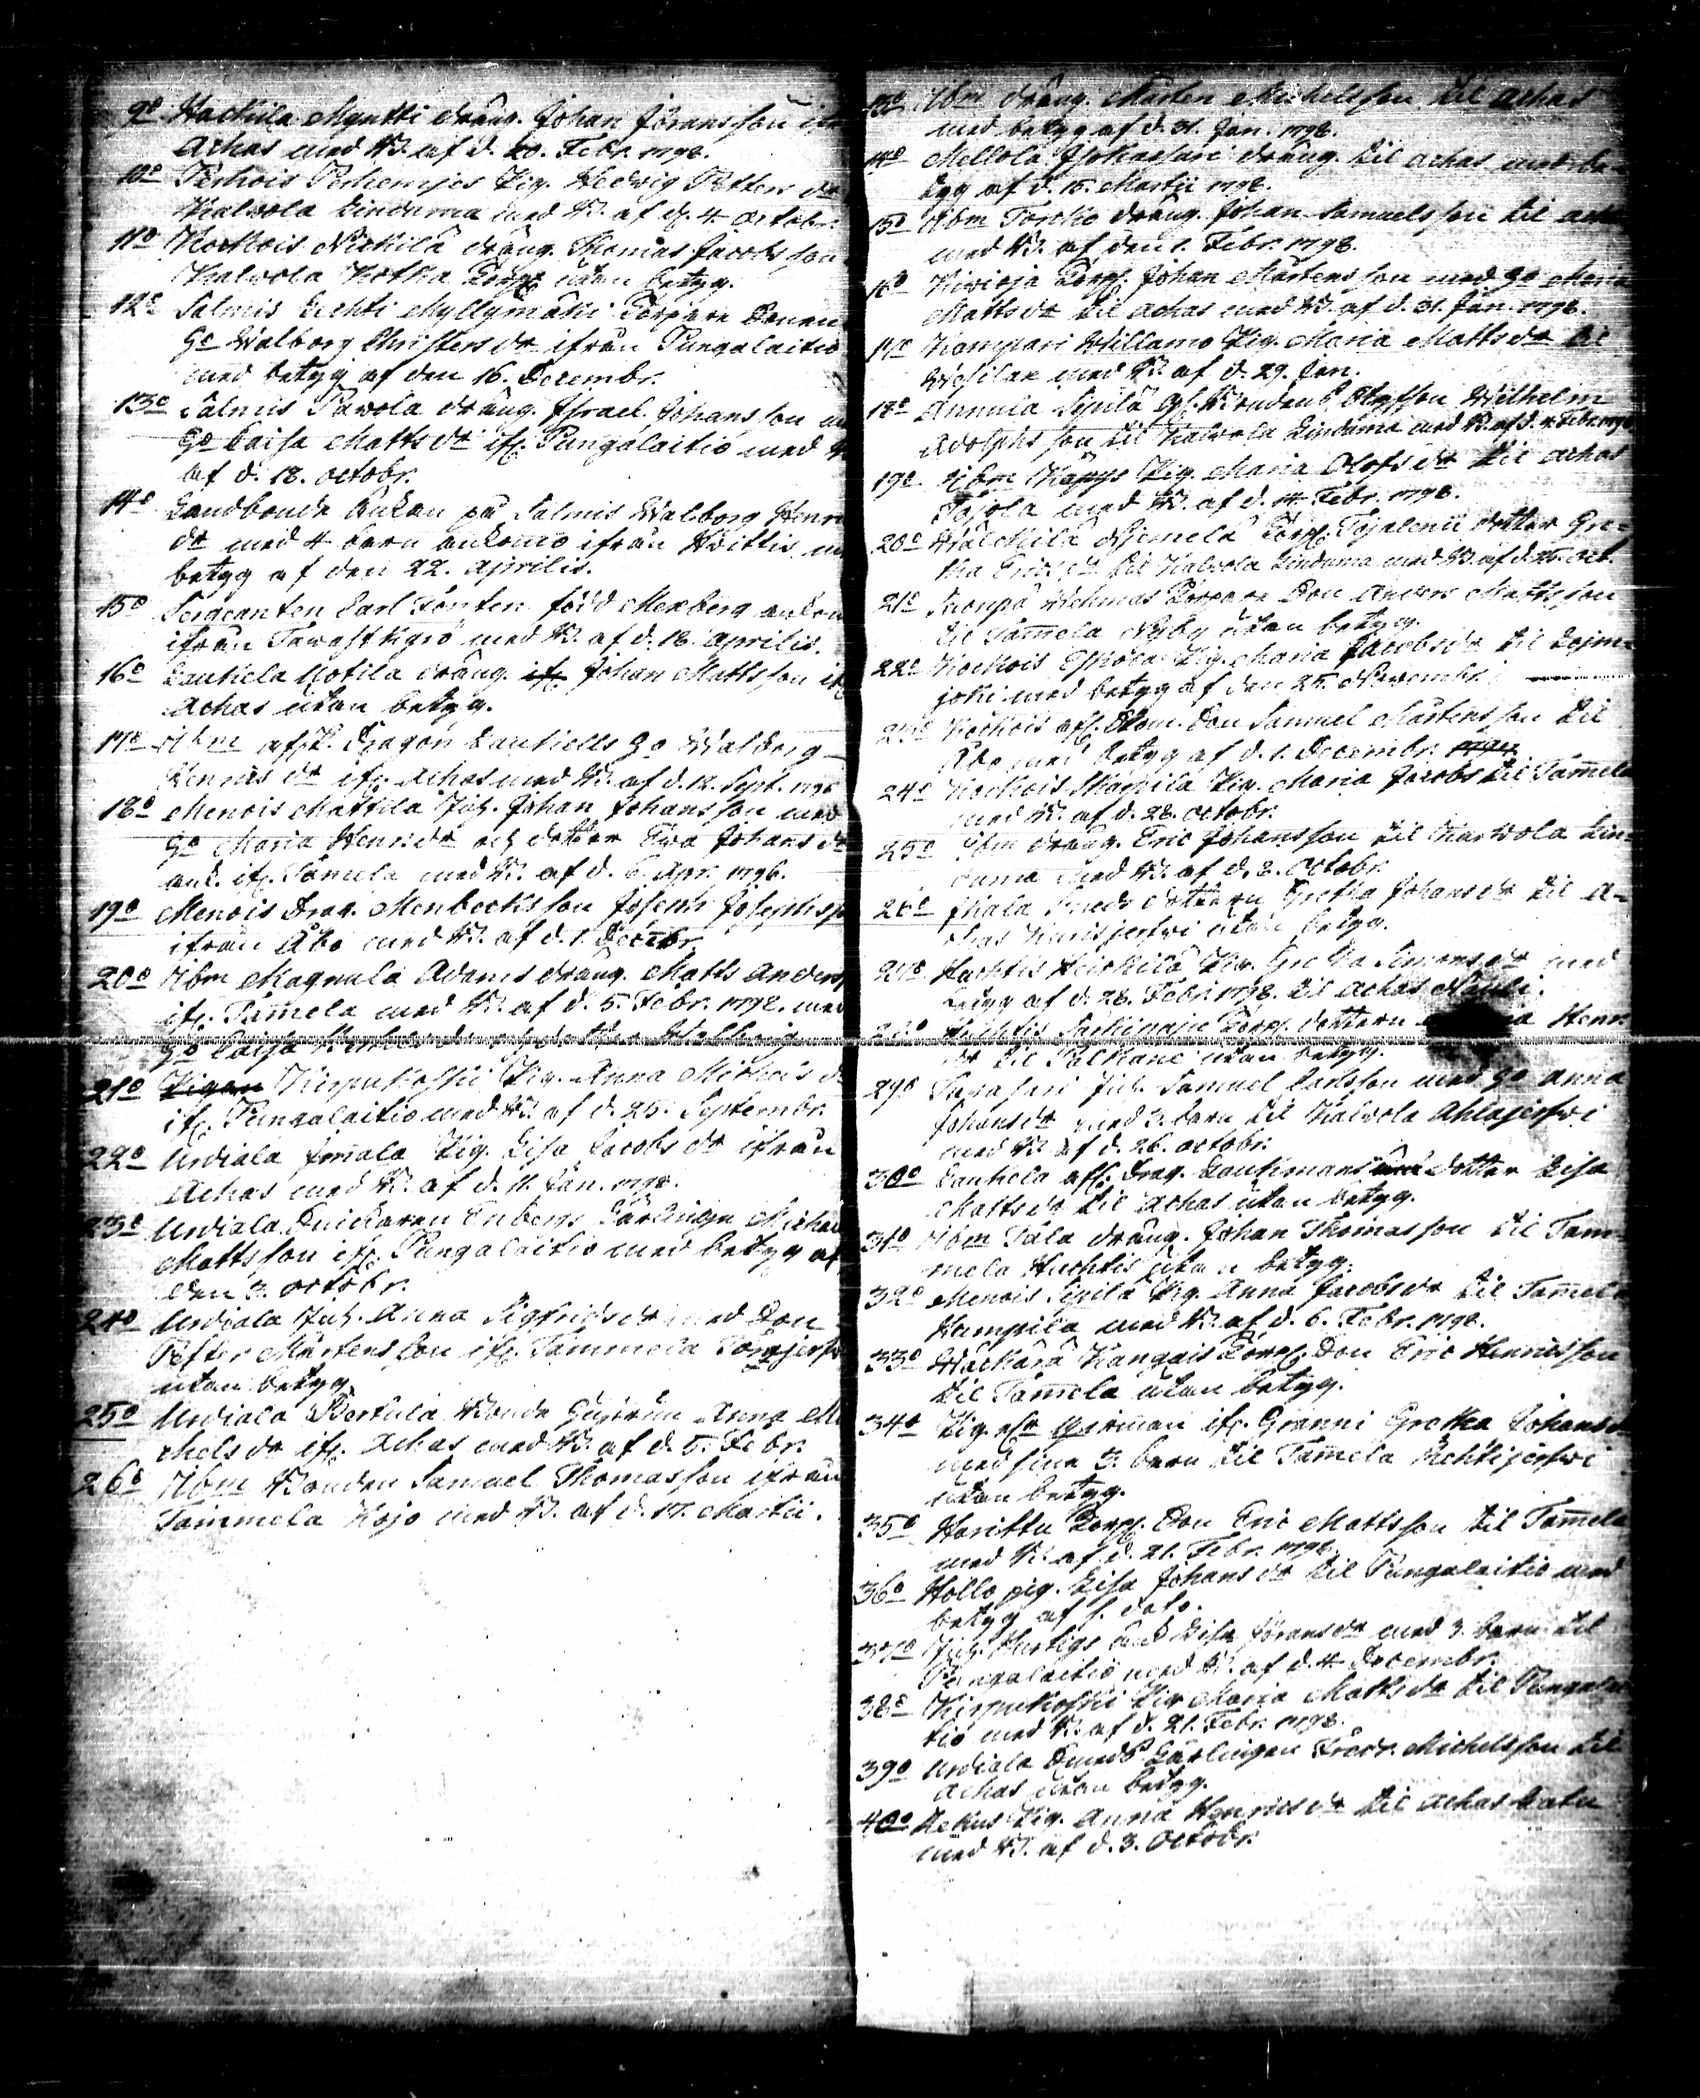 9o Hackila Myntti dräng. Johan Jöransson ifr
Achas med B. af d. 20. Febr. 1798.
10o Perhois Perhemjes Pig. Hedwig Petters dr
Kalvola Lindama med B. af d. 4 octobr.
11o Kockois Nickilä dräng. Thomas Jacobsson
Kalvola Kotka Torp utan betyg.
12o Salmis Lechti Myllymäki Torpare Sonen
ho Walborg Christers dr ifrån Pungalaitio
med betyg af den 16. Decembr.
13o Salmis Pawola dräng. Israel Johansson
ho Caisa Matts dr ifr. Pungalaitio med
af d. 18. octobr.
14o Landbonde Enkan på Salmis Walborg Henr
dr med 4 barn ankomo ifrån Hvittis
betyg af den 22. aprilis.
15o Sergeanten Carl född Mexberg
ifrån Tawastkyrö med B. af d. 18 aprilis.
16o Lauhela Uotila dräng. ifr. Johan Mattsson ifr
Achas utan betyg.
17o Ibm afsk. Dragon ho Walborg
Henrics dr ifr. Achas med B. af d. 12. Sept. 1796
18o Menois Mattila Inh. Johan Johansson med
ho Maria Henr. dr och dotter Ewa Johans dr
ank. ifr. Tamela med B. af d. 6. Apr. 1796.
19o Menois Drag. Menbecks son Joseph Josephs
ifrån Åbo med B. af d. 1. Decebr.
20o Ibm Magnula Adams dräng. Matts Anders
ifr. Tamela med B. af d. 5. Febr. 1798. med
ho Caisa
21o Pigan Kirpukoski Pig. Anna Michels dr
ifr. Pungalaitio med B. af d. 25. Septembr.
22o Urdiala Immala Pig. Lisa Jacobs dr ifrån
Achas med B. af d. 11. Jan. 1798.
23o Urdiala Snickaren Enbergs Lärling Michel
Mattsson ifr. Pungalaitio med betyg af
den 3. octobr.
24o Urdiala Inh. Anna Sigfrids dr med Son
Petter Mårtensson ifr. Tammela
utan betyg.
25o Urdiala Bertula Bonde Hustrun Anna Mi
chels dr ifr. Achas med B. af d. 5. Febr.
26o Ibm Bonden Samuel Thomasson ifrån
Tammela Kojo med B. af d. 17. Martii.
13o Ibm dräng. Mårten Michelsson til Achas
med betyg af d. 31. Jan. 1798.
14o Mellola dräng. til Achas med be-
tyg af d. 15. Martii 1798.
15o Ibm dräng. Johan Samuelsson til
med B. af den 1. Febr. 1798.
16o Kivioja Torp. Johan Mårtensson med ho
Matts dr til Achas med B. af d. 31. Jan. 1798.
17o Kampari Willamo Pig. Maria Matts dr til
Wesilax med B. af d. 29. Jan.
18o Annula Sipilä Wilhelm
Adolphsson til Kalvola Lindama med B. af d.
19o Ibm Käpys Pig. Maria Olofs dr til Achas
Tojola med B. af d. 14. Febr. 1798.
20o Torp. dotter Gre-
tha Erics dr til Kalvola Lindama med B. af d. 25. oct.
21o Torpare Son Anders Mattsson
til Tamela Nyby utan betyg.
22o Kockois Pig. Maria Jacobs dr til Loim-
joki med betyg af den 25. Novembr.
23o Kockois Son Samuel Mårtensson til
Åbo med betyg af d. 1. Decembr.
24o Kockois Pig. Maria Jacobs til Tamela
med B. af d. 28. octobr.
25o Ibm dräng. Eric Johansson til Kalvola Lin-
dama med B. af d. 2. Octobr.
26o dottern Gretha Johans dr til A-
chas utan betyg.
27o Huchtis Heickilä Pig. Simons dr med
betyg af d. 28. Febr. 1798. til Achas
28o Huchtis Torp. dottern Henr
dr til Palkane utan betyg.
29o Inh. Samuel Carlsson med ho Anna
Johans dr med 3. barn til Kalvola Ahlajerfwi
med B. af d. 26. octobr.
30o Lauhela afsk. Drag. dotter Lisa
Matts dr til Achas utan betyg.
31o Ibm Tala dräng. Johan Thomasson til Tam
mela Huchtis utan betyg.
32o Menois Sipilä Pig. Anna Jacobs dr til Tamela
Humpila med B. af d. 6. Febr. 1798.
33o Wäckärä Kangais Torp. Son Eric Henricsson
til Tamela utan betyg.
34o Pig. ifr. Gretha Johans dr
med sina 3. barn til Tamela
utan betyg.
35o Harittu Torp. Son Eric Mattsson til Tamela
med B. af d. 21. Febr. 1798.
36o Hollo pig. Lisa Johans dr til Pungalaitio med
betyg af s. dato.
37o Inh. Lisa Jörans dr med 3. barn til
Pungalaitio med B. af d. 4 Decembr.
38o Kirpukoski Pig Maria Matts dr til Pungalai
tio med B. af d. 21. Febr. 1798.
39o Urdiala Smeds Lärlingen Michelsson til
Achas utan betyg.
40o Pig. Anna Henrics dr til Achas
med B. af d. 3. Octobr.